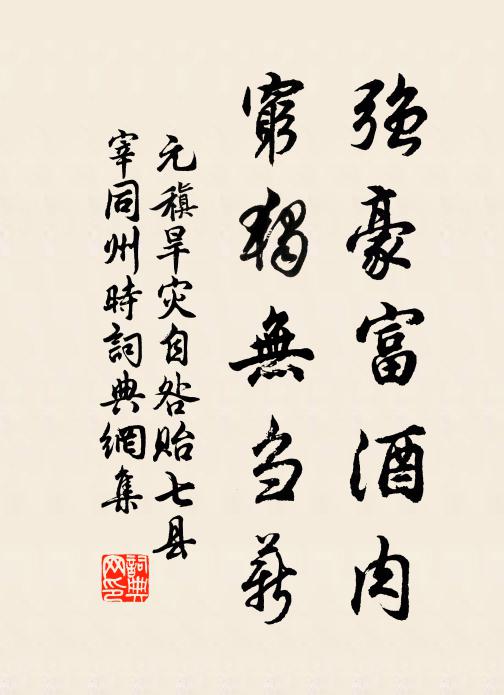 強豪富酒肉
窮獨無芻薪
元稹旱灾自咎贻七县
宰同州時詞典網集
詞典
网印